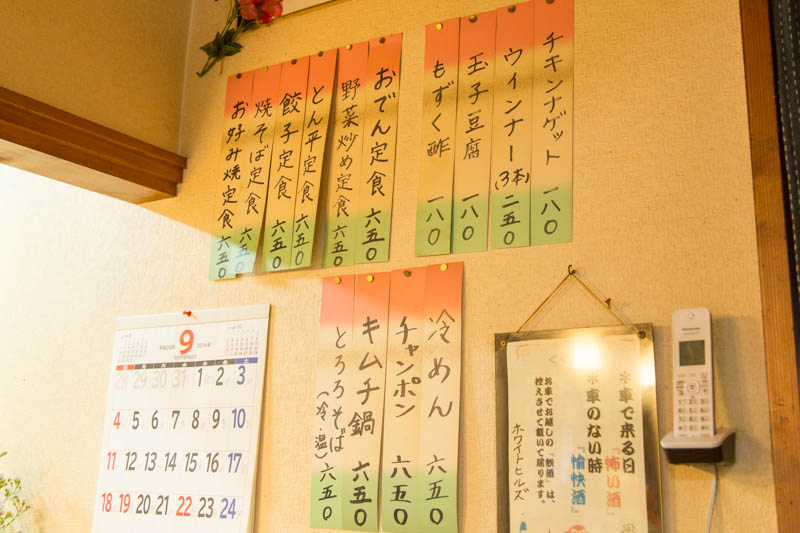 チキンナゲット 一八〇
ウインナー(3本) 二五〇
玉子豆腐 一八〇
もずく酢 一八〇
おでん定食 六五〇
野菜炒め定食 六五〇
とん平定食 六五〇
餃子定食 六五〇
焼そば定食 六五〇
お好み焼定食 六五〇
冷めん 六五〇
チャンポン 六五〇
キムチ鍋 六五〇
とろろそば(冷・温) 六五〇
9
SEPTEMBER
2016
日 月 火 水 木 金 土
28 29 30 31 1 2 3
4 5 6 7 8 9 10
11 12 13 14 15 16 17
18 19 20 21 22 23 24
<<
*車で来る日
『怖い酒』
*車のない時
『愉快酒』
お車でお越しの「飲酒」は、
控えさせて戴いて居ります。
ホワイトヒルズ
Panasonic